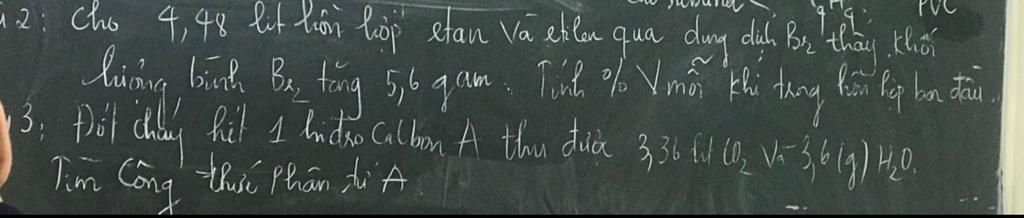 PVC
2: Cho 4,48 lit hỗn hợp etan Và etilen qua dung dịch Br2 thấy khối
lượng bình Br2 tăng 5,6 gam. Tính % V mỗi khí trong hỗn hợp ban đầu.
3; Đốt cháy hết 1 hidro Cacbon A thu được 3,36 lit CO2 Và 3,6 (g) H2O.
Tìm Công thức Phân tử A